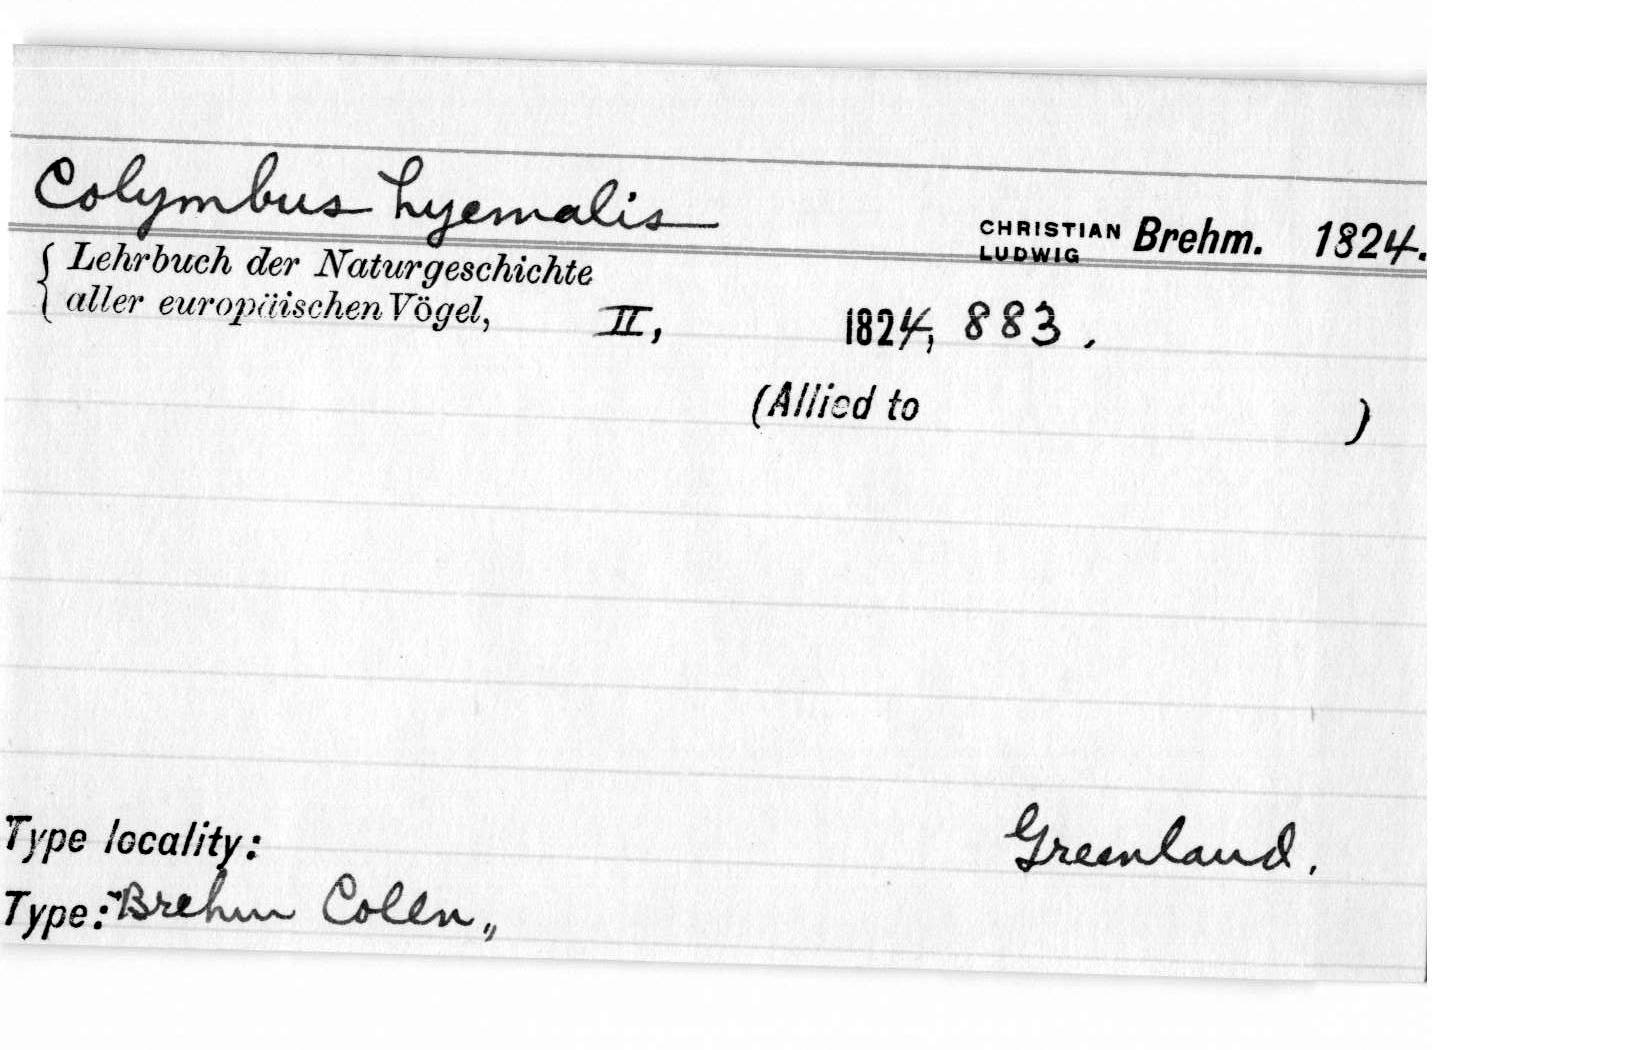 Colymbus hyemalis CHRISTIAN LUDWIG Brehm. 1824.
Lehrbuch der Naturgeschichte
aller europäischen Vögel, II, 1824, 883.
(Allied to )
Type locality: Greenland.
Type: Brehm Colln.